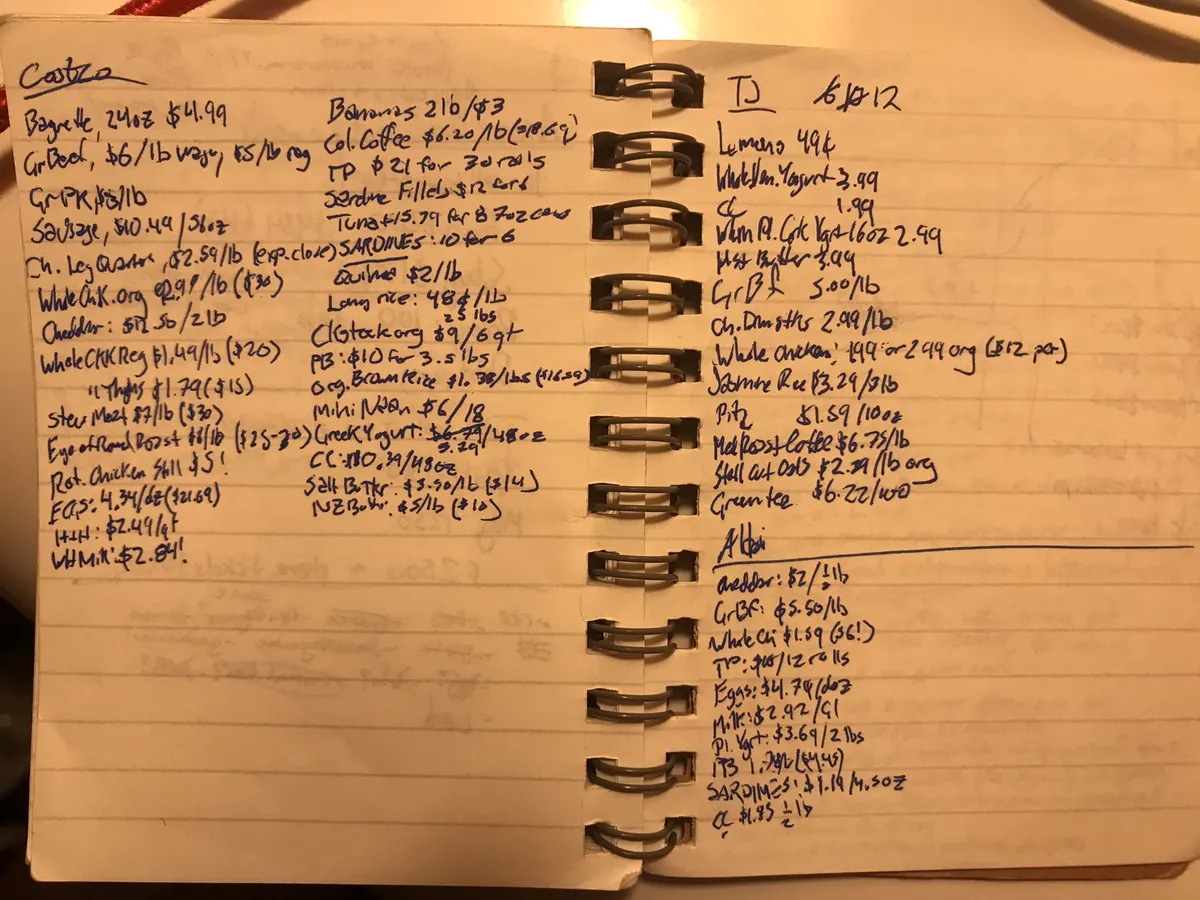 Costco
Baguette, 24oz $4.99
Gr Beef, $6/lb wagu, $5/lb reg
Gr PK, $3/lb
Sausage, $10.49/56oz
Ch. Leg Quarters, $2.59/lb (exp. close)
Whole Chk. org $2.99/lb ($30)
Cheddar: $12.50/2lb
Whole CKK Reg $1.49/lb ($20)
" Thighs $1.79 ($15)
Stew Meat $7/lb ($30)
Eye of Round Roast $8/lb ($25-30)
Rot. Chicken Still $5!
EGGS: 4.34/dz ($21.69)
H+H: $2.49/qt
Wh Milk: $2.84!
Bananas 2lb/$3
Col. Coffee $6.20/lb
TP $21 for 30 rolls
Sardine Fillets $12 for 6
Tuna $15.79 for 8 7oz cans
SARDINES: 10 for 6
Quinoa $2/lb
Long rice: 48¢/lb
25 lbs
CKStock org $9/6qt
PB: $10 for 3.5 lbs
Org. Brown Rice $1.38/lbs ($16.59)
Mini Naan $6/18
Greek Yogurt: $6.79/48oz
5.29
CC: /48oz
Salt Butter: $3.50/lb ($14)
NZ Buttr: $5/lb ($10)
TJ 12
Lemons 49¢
Whole Ven. Yogurt 3.99
CC 1.99
Whm Pl. Grk Ygrt 16oz 2.99
Butter 3.99
Gr Bf 5.00/lb
Ch. Drmstks 2.99/lb
Whole chicken: 199 or 299 org ($12 per)
Jasmine Rice $3.29/3lb
Pita $1.59/10oz
Med Roast Coffee $6.75/lb
Steel Cut Oats $2.29/lb org
Green tea $6.22/100
Aldi
Cheddar: $2/½lb
Gr BF: $5.50/lb
Whole Ch $1.59 ($6!)
TP: /12 rolls
Eggs: $4.74/doz
Milk: $2.92/Gl
Pl. Ygrt: $3.69/2lbs
PB ($4.45)
SARDINES: $1.19/4.50Z
CC $1.85 ½lb